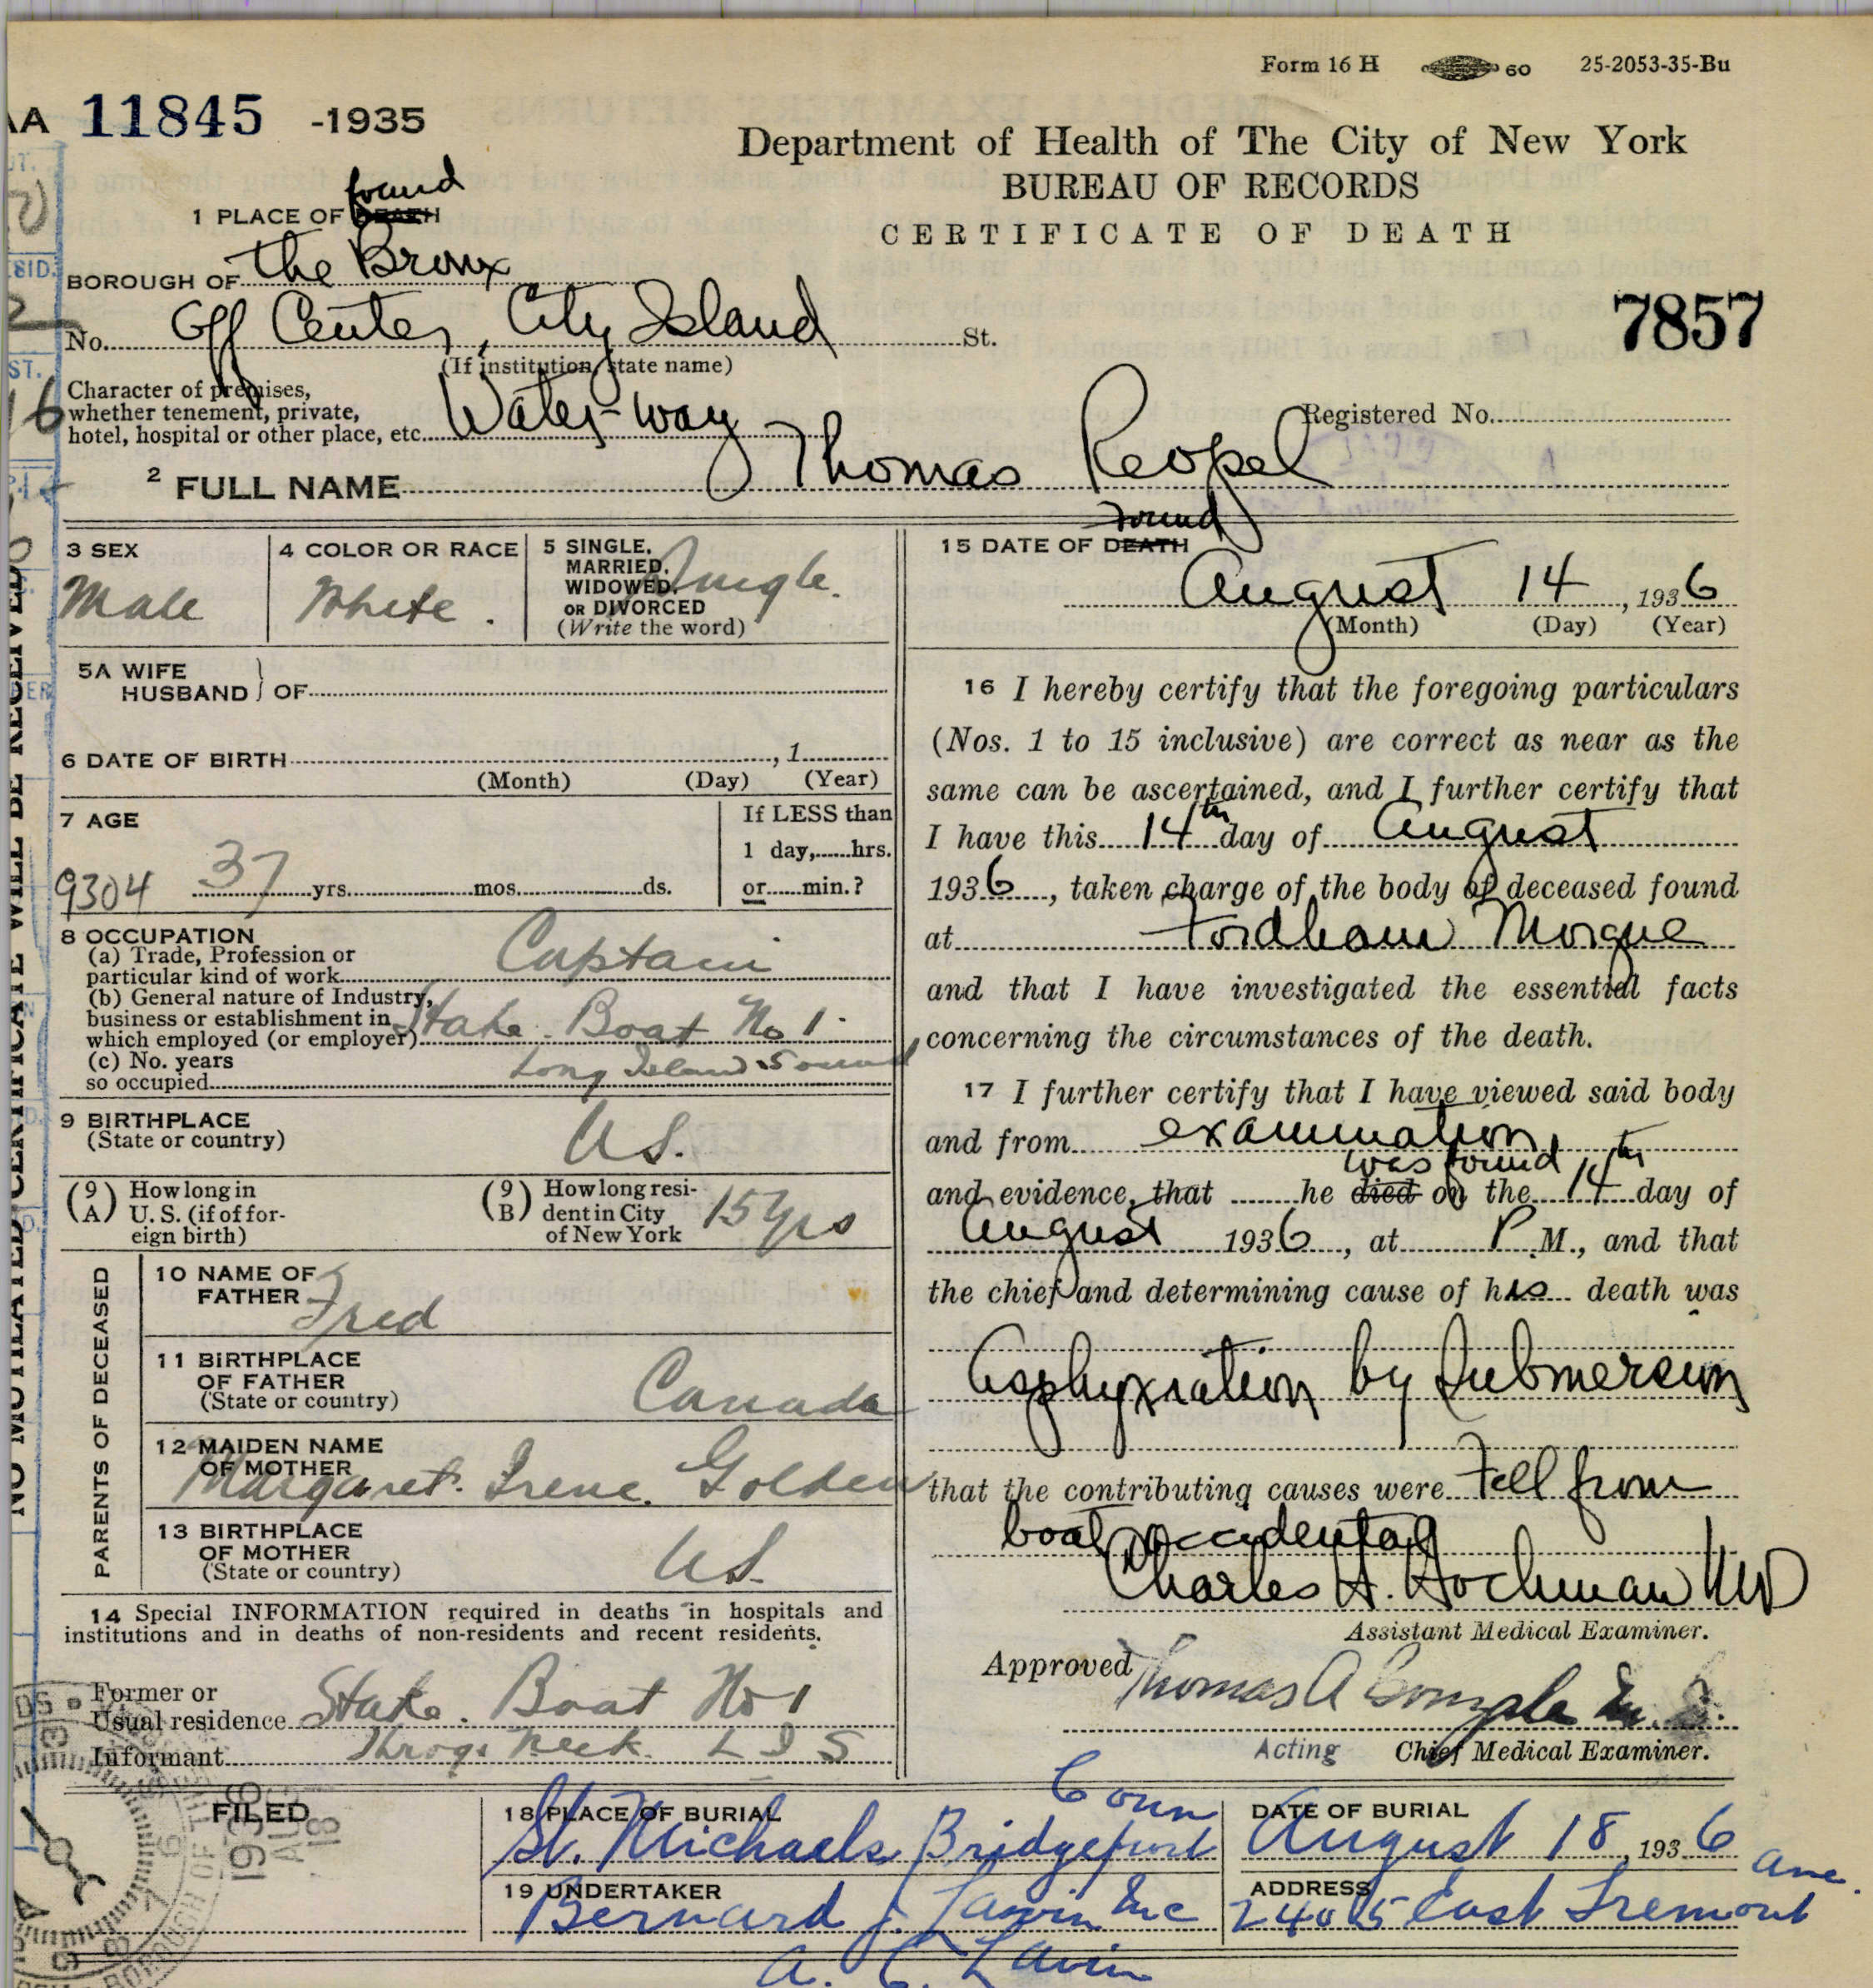 Form 16 H 60 25-2053-35-Bu
AA 11845 -1935
Department of Health of The City of New York
BUREAU OF RECORDS
CERTIFICATE OF DEATH
7857
found
1 PLACE OF DEATH
BOROUGH OF the Bronx
No. Off Center, City Island St.
(If institution, state name)
Character of premises,
whether tenement, private,
hotel, hospital or other place, etc. Water-way
Registered No.
2 FULL NAME Thomas Reopel
3 SEX
Male
4 COLOR OR RACE
White.
5 SINGLE,
MARRIED,
WIDOWED,
OR DIVORCED
(Write the word)
Single.
5A WIFE
HUSBAND } OF
6 DATE OF BIRTH , 1
(Month) (Day) (Year)
7 AGE
9304 37 yrs. mos. ds.
If LESS than
1 day, hrs.
or min.?
8 OCCUPATION
(a) Trade, Profession or
particular kind of work Captain
(b) General nature of Industry,
business or establishment in
which employed (or employer) Stake. Boat No 1.
(c) No. years
so occupied Long Island Sound
9 BIRTHPLACE
(State or country)
US.
(9A) How long in
U. S. (if of for-
eign birth)
(9B) How long resi-
dent in City
of New York 15 yrs
PARENTS OF DECEASED
10 NAME OF
FATHER
Fred
11 BIRTHPLACE
OF FATHER
(State or country) Canada
12 MAIDEN NAME
OF MOTHER
Margaret. Irene. Golden
13 BIRTHPLACE
OF MOTHER
(State or country) US.
14 Special INFORMATION required in deaths in hospitals and
institutions and in deaths of non-residents and recent residents.
Former or
Usual residence Stake. Boat No 1
Informant Throgs Neck. L I S
found
15 DATE OF DEATH
August 14, 1936
(Month) (Day) (Year)
16 I hereby certify that the foregoing particulars
(Nos. 1 to 15 inclusive) are correct as near as the
same can be ascertained, and I further certify that
I have this 14th day of August
1936, taken charge of the body of deceased found
at Fordham Morgue
and that I have investigated the essential facts
concerning the circumstances of the death.
17 I further certify that I have viewed said body
and from examination,
was found
and evidence, that he died on the 14th day of
August 1936, at P.M., and that
the chief and determining cause of his death was
Asphyxiation by Submersion
that the contributing causes were Fell from
boat, accidental
Charles H. Hochman MD
Assistant Medical Examiner.
Approved Thomas A Gonzales M.D.
Acting Chief Medical Examiner.
NO MUTILATED CERTIFICATE WILL BE RECEIVED
FILED
1936 AUG 18
18 PLACE OF BURIAL
St. Michaels Bridgeport Conn
DATE OF BURIAL
August 18, 1936
19 UNDERTAKER
Bernard J. Lavin Inc
ADDRESS
2405 East Tremont Ave.
A. C. Lavin